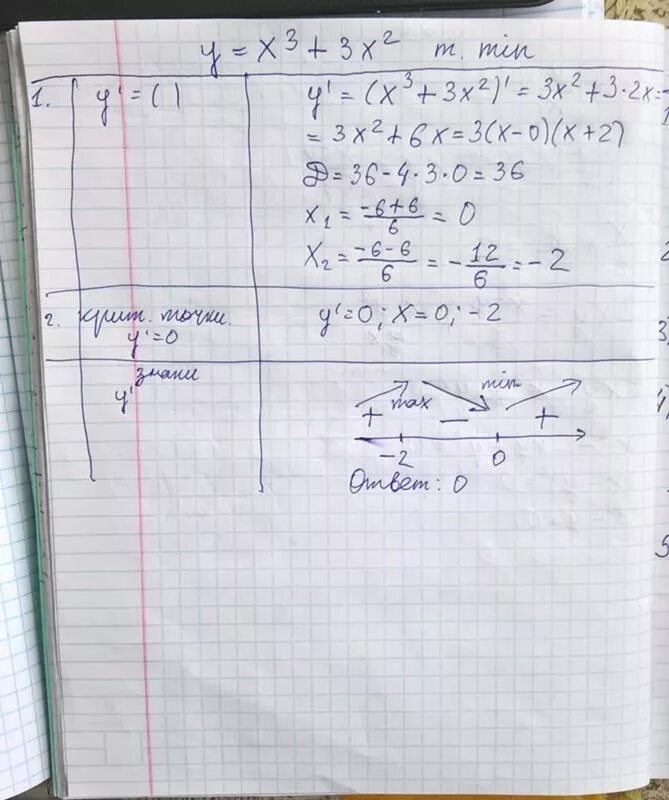 y = x³ + 3x² т. min
1. y' = ( ) y' = (x³ + 3x²)' = 3x² + 3·2x =
= 3x² + 6x = 3(x-0)(x+2)
Д = 36 - 4·3·0 = 36
x₁ = (-6+6)/6 = 0
x₂ = (-6-6)/6 = -12/6 = -2
2. крит. точки. y'=0; x=0; -2
y'=0
знаки
y'
max min
+ − +
-2 0
Ответ: 0